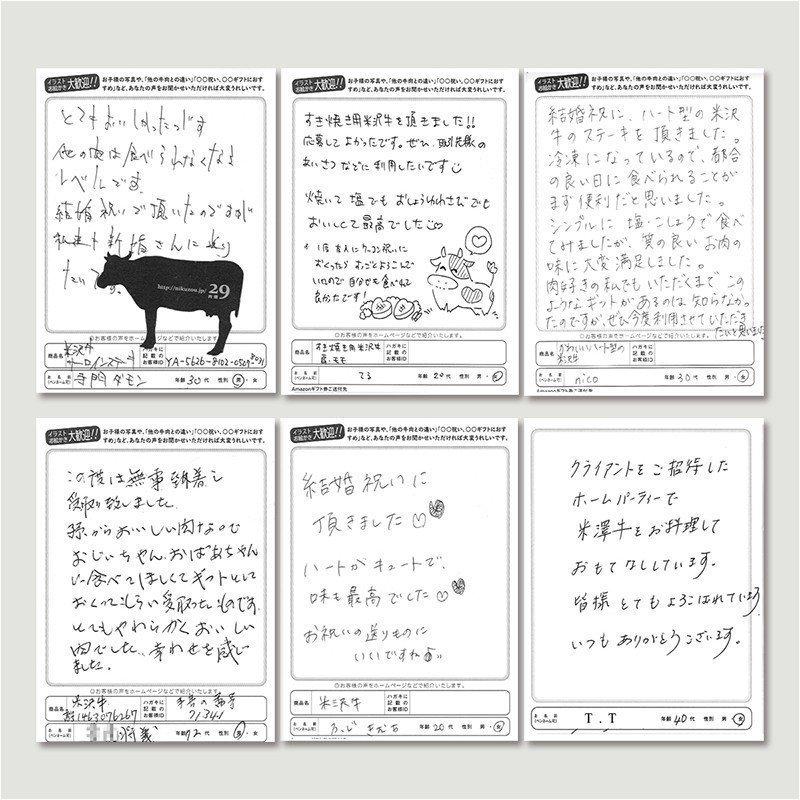 イラスト
お絵かき
大歓迎!!
お子様の写真や、「他の牛肉との違い」「〇〇祝い、〇〇ギフトにおす
すめ」など、あなたの声をお聞かせいただければ大変うれしいです。
とてもおいしかったっです
他の肉は食べられなくなる
レベルです。
結婚祝いで頂いたのですが
新婚さんに送り
たいです。
http://nikuzou.jp/
29
〇お客様の声をホームページなどで紹介いたします。
商品名
米沢牛
サーロインステーキ
ハガキに
記載の
お客様ID
YA-5626-8102-0569-8031
お名前
(ペンネーム可)
寺門ダモン
年齢 30代 性別 男・女
イラスト
お絵かき
大歓迎!!
お子様の写真や、「他の牛肉との違い」「〇〇祝い、〇〇ギフトにおす
すめ」など、あなたの声をお聞かせいただければ大変うれしいです。
すき焼き用米沢牛を頂きました!!
応募してよかったです。ぜひ、取引先様の
あいさつなどに利用したいです
焼いて塩でもおしょうゆわさびでも
おいしくて最高でした
1度友人にケッコン祝いに
おくったら すっごくよろこんで
いたので自分でも食べれて
良かったです!
〇お客様の声をホームページなどで紹介いたします。
商品名
すき焼き用米沢牛
肩・モモ
ハガキに
記載の
お客様ID
お名前
(ペンネーム可)
てる
年齢 20代 性別 男・女
Amazonギフト券ご送付先
イラスト
お絵かき
大歓迎!!
お子様の写真や、「他の牛肉との違い」「〇〇祝い、〇〇ギフトにおす
すめ」など、あなたの声をお聞かせいただければ大変うれしいです。
結婚祝いに、ハート型の米沢
牛のステーキを頂きました。
冷凍になっているので、都合
の良い日に食べられることが
まず便利だと思いました。
シンプルに塩・こしょうで食べ
てみましたが、質の良いお肉の
味に大変満足しました。
肉好きの私でもいただくまでこの
ようなギフトがあるのは知らなかっ
たのですが、ぜひ今度利用させていただき
たいと思いました
〇お客様の声をホームページなどで紹介いたします。
商品名
かわいいハート型の
米沢牛
ハガキに
記載の
お客様ID
お名前
(ペンネーム可)
nico
年齢 30代 性別 男・女
Amazonギフト券ご送付先
イラスト
お絵かき
大歓迎!!
お子様の写真や、「他の牛肉との違い」「〇〇祝い、〇〇ギフトにおす
すめ」など、あなたの声をお聞かせいただければ大変うれしいです。
この度は無事到着し
受取り致しました。
孫からおいしい肉なので
おじいちゃん、おばあちゃん
に食べてほしくてギフトとして
おくってもらい受取ったものです。
とてもやわらかくおいしい
肉でした、幸わせを感じ
ました。
〇お客様の声をホームページなどで紹介いたします。
商品名
米沢牛
1463076267
ハガキに
記載の
お客様ID
71341
お名前
(ペンネーム可)
年齢 72代 性別 男・女
イラスト
お絵かき
大歓迎!!
お子様の写真や、「他の牛肉との違い」「〇〇祝い、〇〇ギフトにおす
すめ」など、あなたの声をお聞かせいただければ大変うれしいです。
結婚祝いに
頂きました♡
ハートがキュートで、
味も最高でした♡
お祝いの送りものに
いいですね♪
〇お客様の声をホームページなどで紹介いたします。
商品名
米沢牛
ハガキに
記載の
お客様ID
お名前
(ペンネーム可)
年齢 20代 性別 男・女
クライアントをご招待した
ホームパーティーで
米澤牛をお料理して
おもてなししています。
皆様とてもよろこばれています
いつもありがとうございます。
お名前
(ペンネーム可)
T.T
年齢 40代 性別 男・女